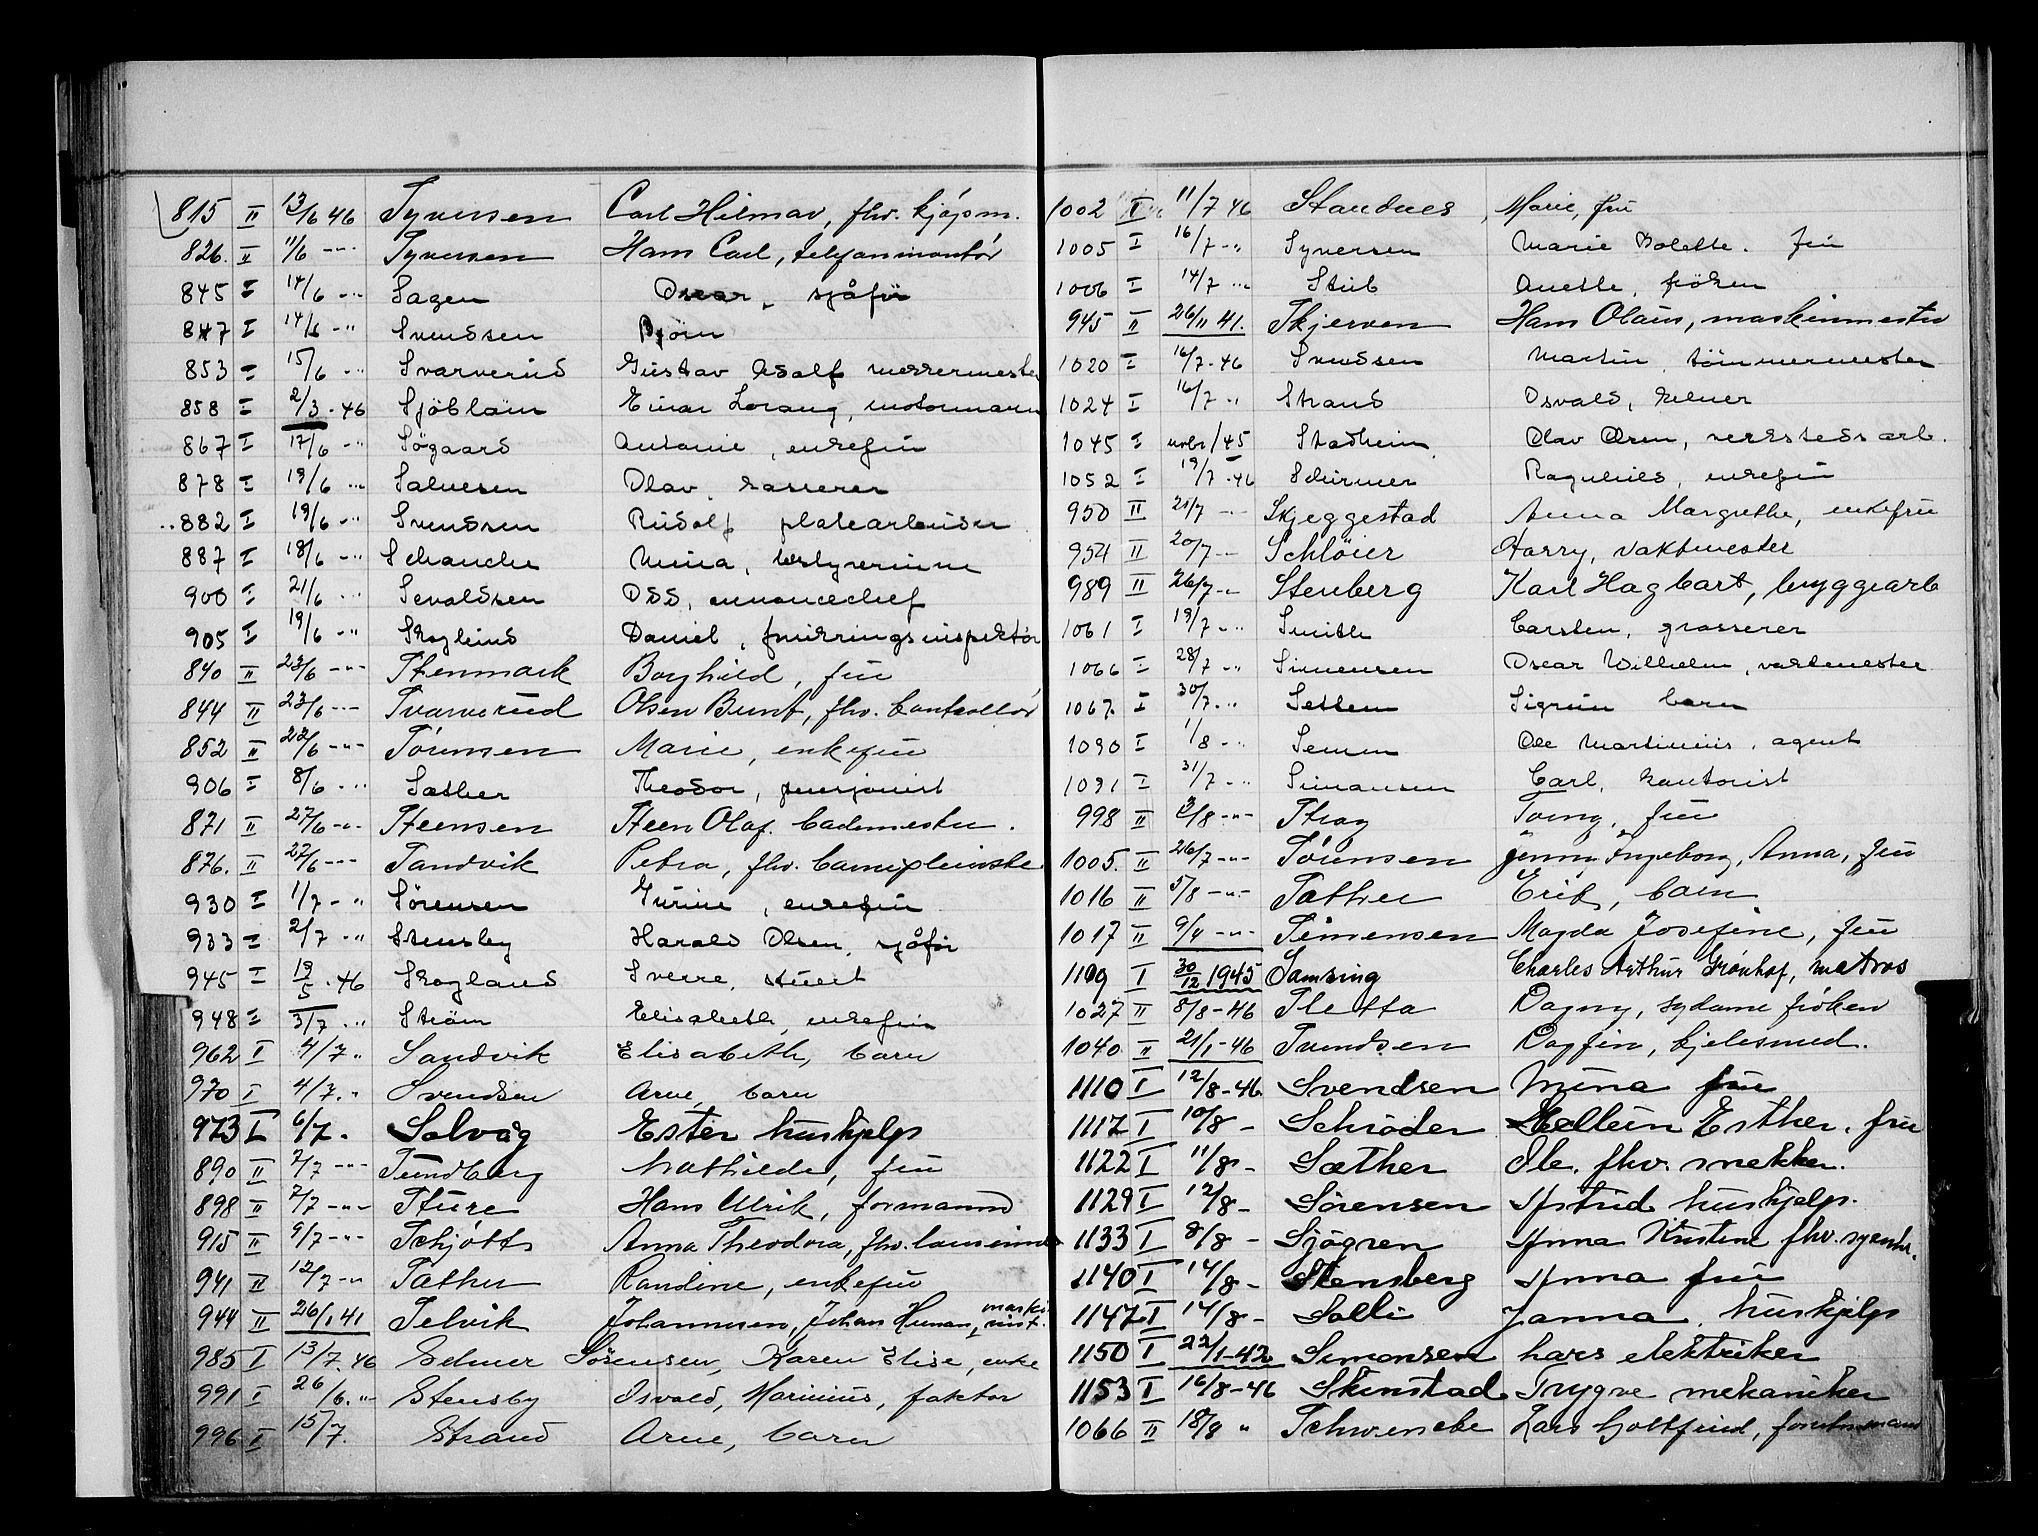 815 II 13/6 46 Syversen Carl Hilmar, fhv. kjøpm.
826. II 11/6 -"- Syversen Hans Carl, telefonmontør
845 I 14/6 -"- Sagen Oscar, sjåfür
847 I 14/6 -" Svendsen Bjørn
853 I 15/6 -" Svarverud Gustav Adolf murermester
858 I 2/3 - 46 Sjöblom Einar Lorang, motormann
867 I 17/6 -" Søgaard Antonie, enkefru
878 I 19/6 -" Salvesen Olav, kasserer
882 I 19/6 -" Svendsen Rudolf platearbeider
887 I 18/6 -" Schanche Mina, bestyrerinne
900 I 21/6 -" Sevaldsen Odd, annonechef
905 I 19/6 -" Skoglund Daniel, fyrikringsinspektør
840 II 23/6 -"- Stenmark Borghild, fru
844 II 23/6 -"- Svarverud Olsen Bernt, fhv. kontrollør
852 II 22/6 -"- Sørensen Marie, enkefru
906 I 8/6 -" Sæther Theodor, pensjonist
871 II 27/6 -"- Steensen Steen Olaf. bademester.
876. II 27/6 -"- Sandvik Petra, fhv. barnepleierske
930 I 1/7 -" Sørensen Gurine, enkefru
933 I 2/7 -" Stensby Harald Olsen, sjåfør
945 I 19/5 - 46 Skogland Sverre, stuert
948 I 3/7 -" Strøm Elisabeth, enkefru
962 I 4/7 -" Sandvik Elisabeth, barn
970 I 4/7 -" Svendsen Arne, barn
973 I 6/7 - Solvåg Ester huskjelp
890 II 7/7 -"- Sundberg Mathilde, fru
898 II 7/7 -"- Sture Hans Ulrik, formannd
915 II 9/7 -"- Schjøtt Anna Theodora, fhv.
941 II 12/7 -"- Sæther Randine, enkefru
944 II 26/1 41 Selvik Johannesen, Johan Herman, maskinist.
985 I 13/7 - 46 Selmer Sørensen, Karen Elise, enke
991 I 26/6 -" Stensby Osvald, Marinius, faktor
996 I 15/7. Strand Arne, barn
1002 I 11/7 46 Strandnes, Marie, fru
1005 I 16/7 -" Syversen Marie Bolette. fru
1006 I 14/7 -" Stub Anette, frøken
945 II 26/11 41. Skjerven Hans Olaus, maskinmester
1020 I 16/7 - 46 Svendsen Martin, tömmermester
1024 I 16/7 -" Strand Osvald, kelner
1045 I novbr/45 Stadheim Olav Olsen, verkstedsarb.
1052 I 19/7 - 46 Schirmer Ragnhild, enkefru
950 II 21/7 -"- Skjeggestad Anna Margrethe, enkefru
954 II 20/7 -"- Schløier Harry, vaktmester
989 II 26/7 -"- Stenberg Karl Hagbart, bryggearb
1061 I 19/7 -" Smith Carsten, grosserer
1066 I 28/7 -" Simensen Oscar Wilhelm, vaktmester
1067. I 30/7 -" Settem Sigrun barn
1090 I 1/8 -" Semen Ole Martinius, agent
1091 I 31/7 -" Simonsen Carl, kontorist
998 II 3/8 -"- Strøg fru
1005. II 26/7 -"- Sørensen Jenny Ingeborg, Anna, fru
1016 II 5/8 -"- Sæther Erik, barn
1017 II 9/4 -"- Simensen Magda Josefine, fru
1109 I 30/12 1945 Samsing Charles Arthur Grønhof, matros
1027 II 8/8 - 46 Sletta Dagny, sydame frøken
1040 II 21/1 - 46 Svendsen Dagfin, kjelesmed.
1110 I 12/8 - 46 Svendsen Mina fru
1117 I 10/8 - Schrøder Esther, fru
1122 I 11/8 - Sæther Ole, fhv. snekker.
1129 I 12/8 - Sørensen Astrid huskjelp.
1133 I 8/8 - Sjøgren Anna Kristine fhv.
1140 I 14/8 - Stensberg Anna fru
1147 I 14/8 - Solli Janna, huskjelp
1150 I 22/1 - 42 Simonsen hars elektriker
1153 I 16/8 - 46 Skinstad Trygve mekaniker
1066 II 18/8 " Schwencke Lars Gottfried, forretnmann